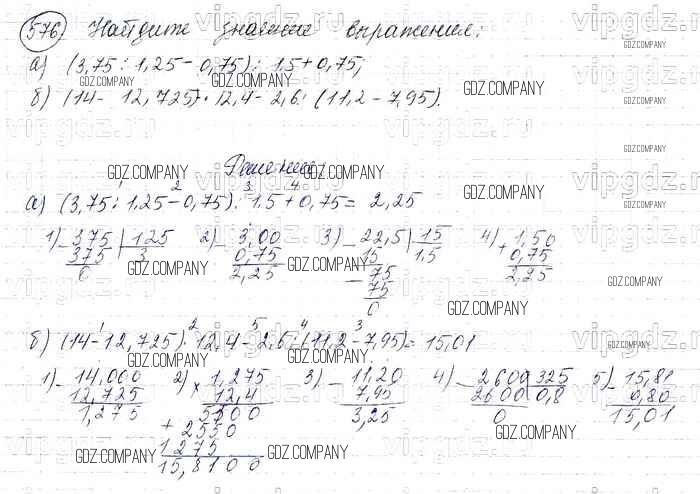 576) Найдите значение выражения:
а) (3,75 : 1,25 - 0,75) : 1,5 + 0,75;
б) (14 - 12,725) · 12,4 - 2,6 : (11,2 - 7,95).
Решение:
1 2 3 4
а) (3,75 : 1,25 - 0,75) : 1,5 + 0,75 = 2,25
1) - 375 | 125 2) - 3,00 3) - 22,5 | 15 4) + 1,50
375 3 0,75 15 1,5 0,75
0 2,25 - 75 2,25
75
0
1 2 5 4 3
б) (14 - 12,725) · 12,4 - 2,6 : (11,2 - 7,95) = 15,01
1) - 14,000 2) × 1,275 3) - 11,20 4) - 2600 | 325 5) - 15,81
12,725 12,4 7,95 2600 0,8 0,80
1,275 5100 3,25 0 15,01
+ 2550
1275
15,8100
GDZ.COMPANY
vipgdz.ru